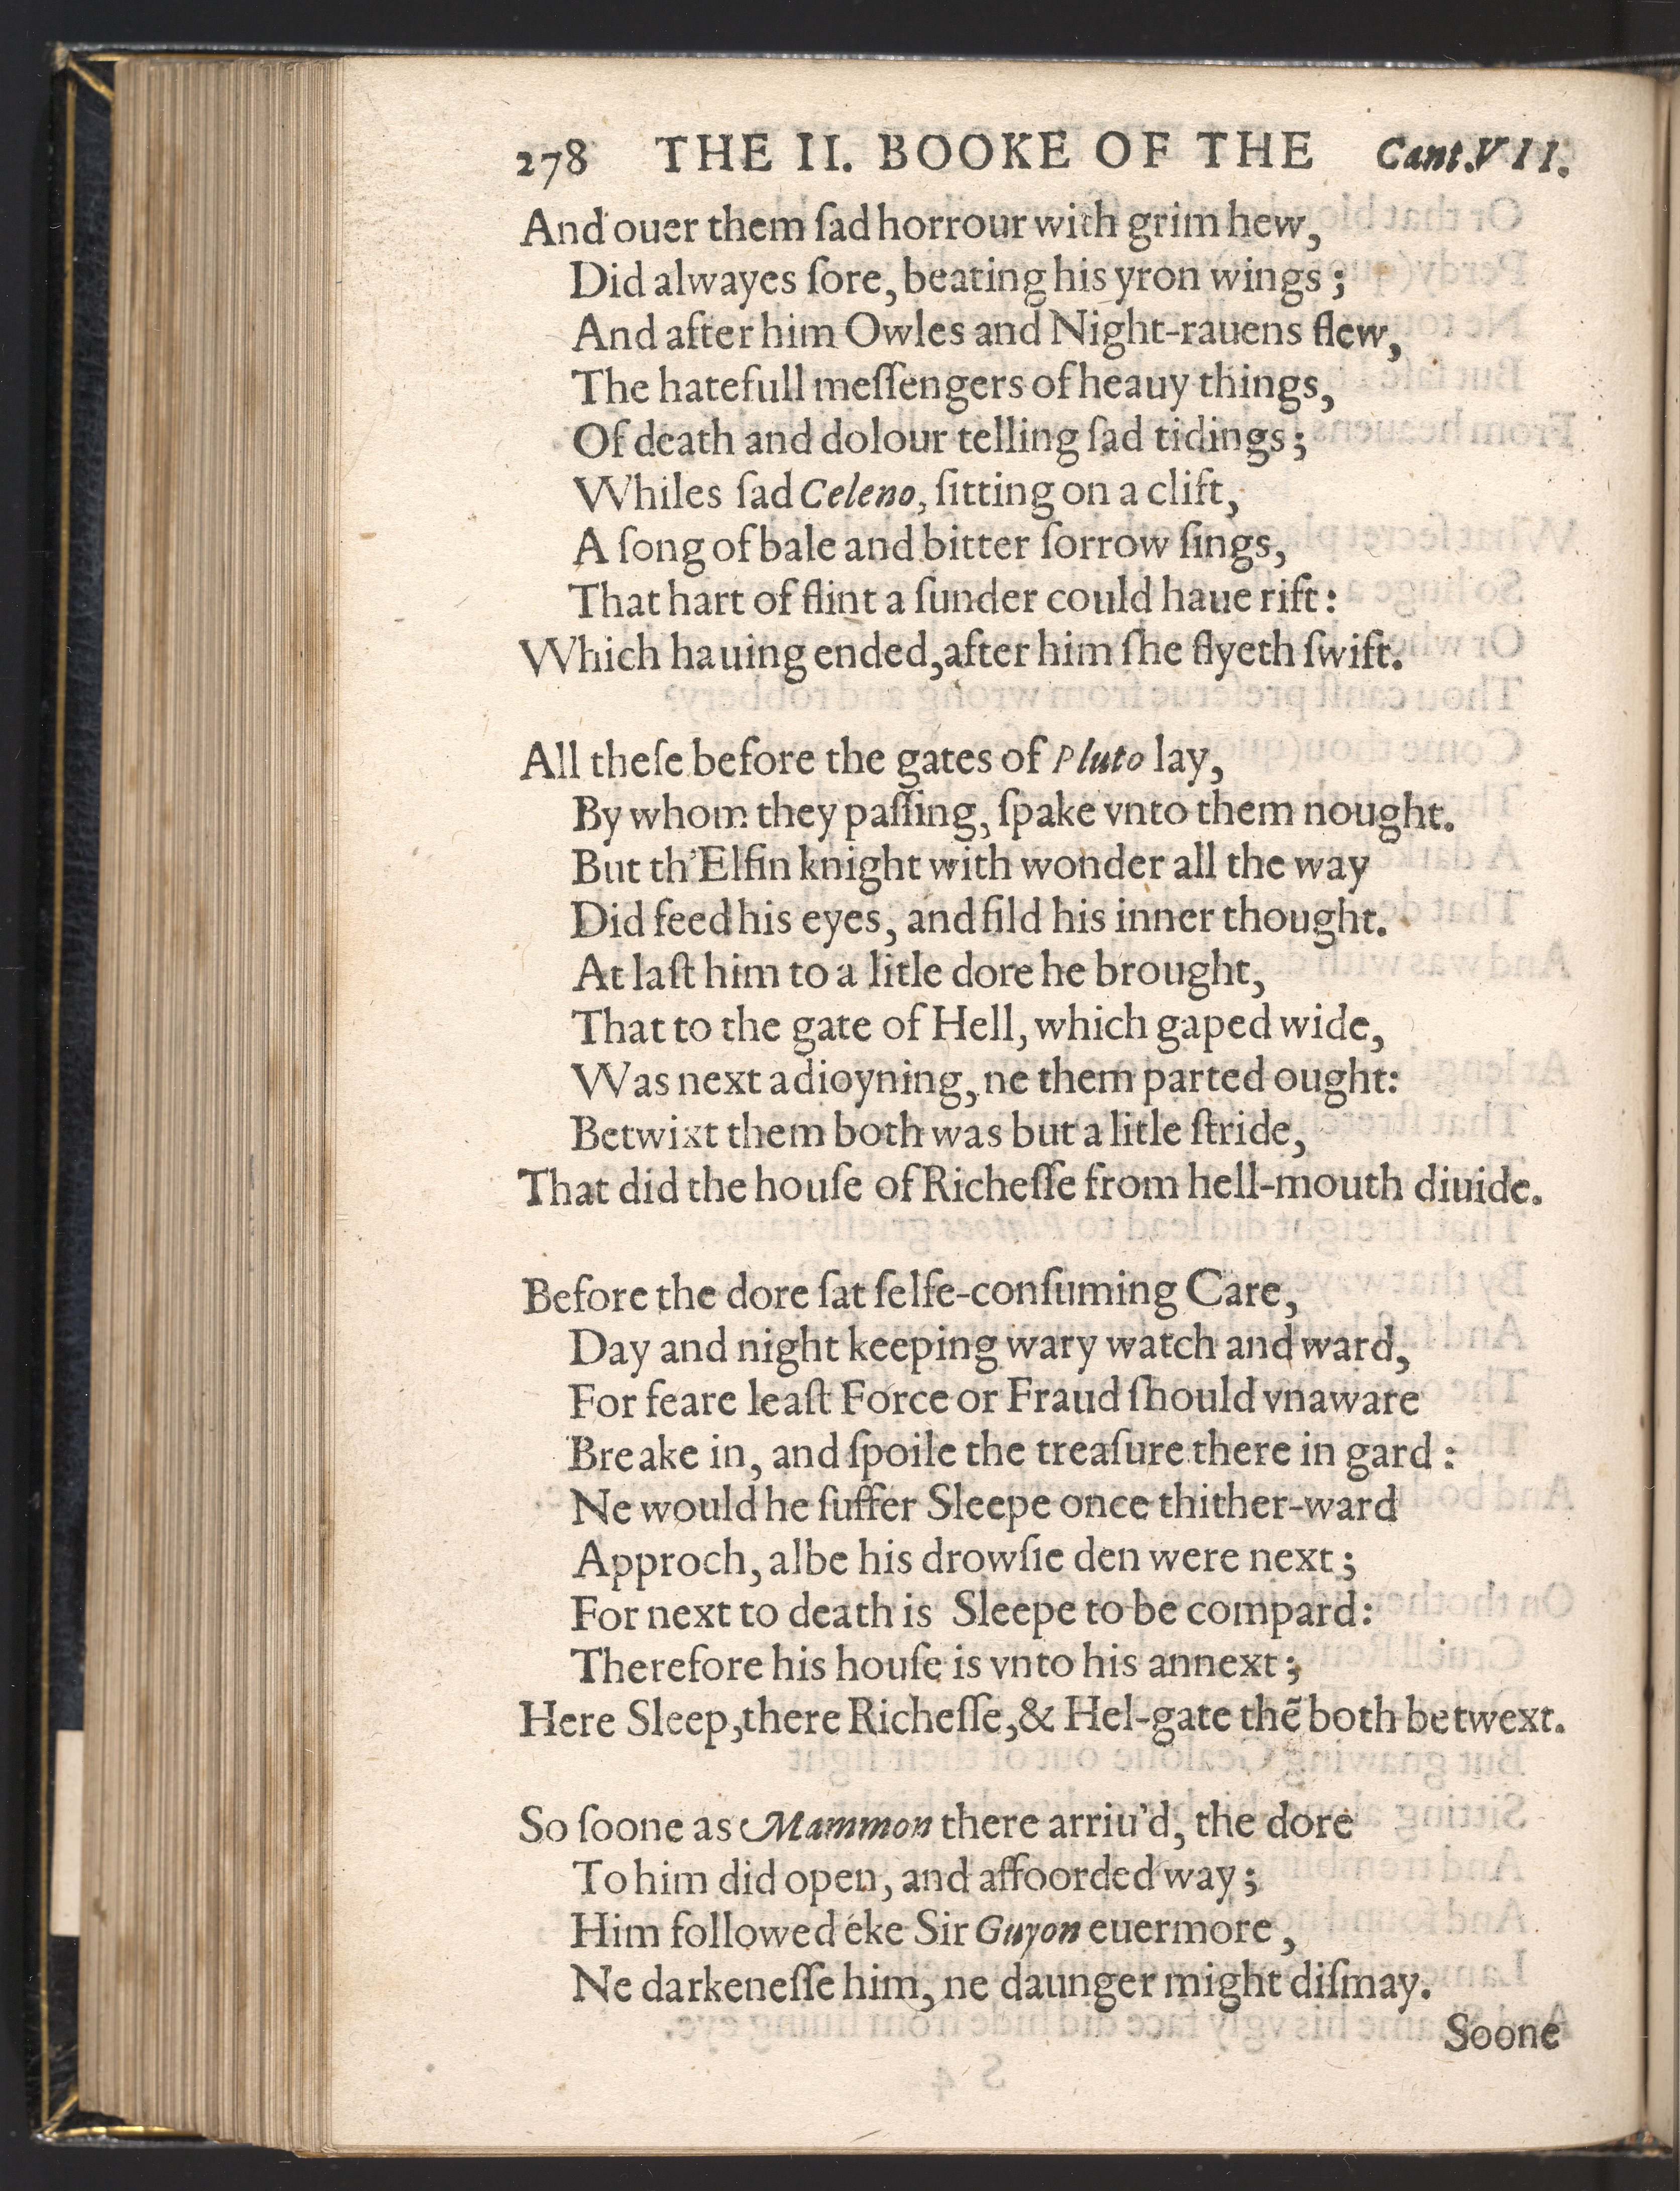 278 THE II. BOOKE OF THE Cant.VII.
And ouer them ſad horrour with grim hew,
Did alwayes ſore, beating his yron wings;
And after him Owles and Night-rauens flew,
The hatefull meſſengers of heauy things,
Of death and dolour telling ſad tidings;
Whiles ſad Celeno, ſitting on a clift,
A ſong of bale and bitter ſorrow ſings,
That hart of flint a ſunder could haue rift:
Which hauing ended, after him ſhe flyeth ſwift.
All theſe before the gates of Pluto lay,
By whom they paſſing, ſpake vnto them nought.
But th'Elfin knight with wonder all the way
Did feed his eyes, and fild his inner thought.
At laſt him to a litle dore he brought,
That to the gate of Hell, which gaped wide,
Was next adioyning, ne them parted ought:
Betwixt them both was but a litle ſtride,
That did the houſe of Richeſſe from hell-mouth diuide.
Before the dore ſat ſelfe-conſuming Care,
Day and night keeping wary watch and ward,
For feare leaſt Force or Fraud ſhould vnaware
Breake in, and ſpoile the treaſure there in gard:
Ne would he ſuffer Sleepe once thither-ward
Approch, albe his drowſie den were next;
For next to death is Sleepe to be compard:
Therefore his houſe is vnto his annext;
Here Sleep, there Richeſſe, & Hel-gate thē both betwext.
So ſoone as Mammon there arriu'd, the dore
To him did open, and affoorded way;
Him followed eke Sir Guyon euermore,
Ne darkeneſſe him, ne daunger might diſmay.
Soone